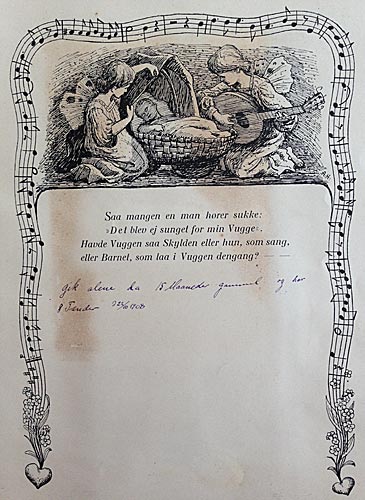 Saa mangen en man hører sukke:
»Det blev ej sunget for min Vugge«.
Havde Vuggen saa Skylden eller hun, som sang,
eller Barnet, som laa i Vuggen dengang? — —
gik alene ca 15 Maaneder gammel og har
8 Tænder 1908